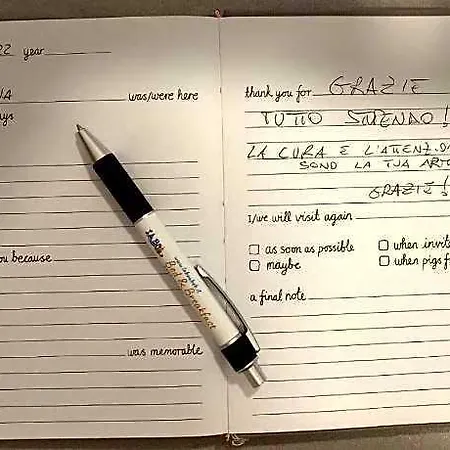 22 year
NA was/were here
ays
ou because
was memorable
thank you for GRAZIE
TUTTO STUPENDO!
LA CURA E L'ATTENZ.
SONO LA TUA ARTE
GRAZIE!
I/we will visit again
as soon as possible
when invite
maybe
when pigs f
a final note
Bed & Breakfast